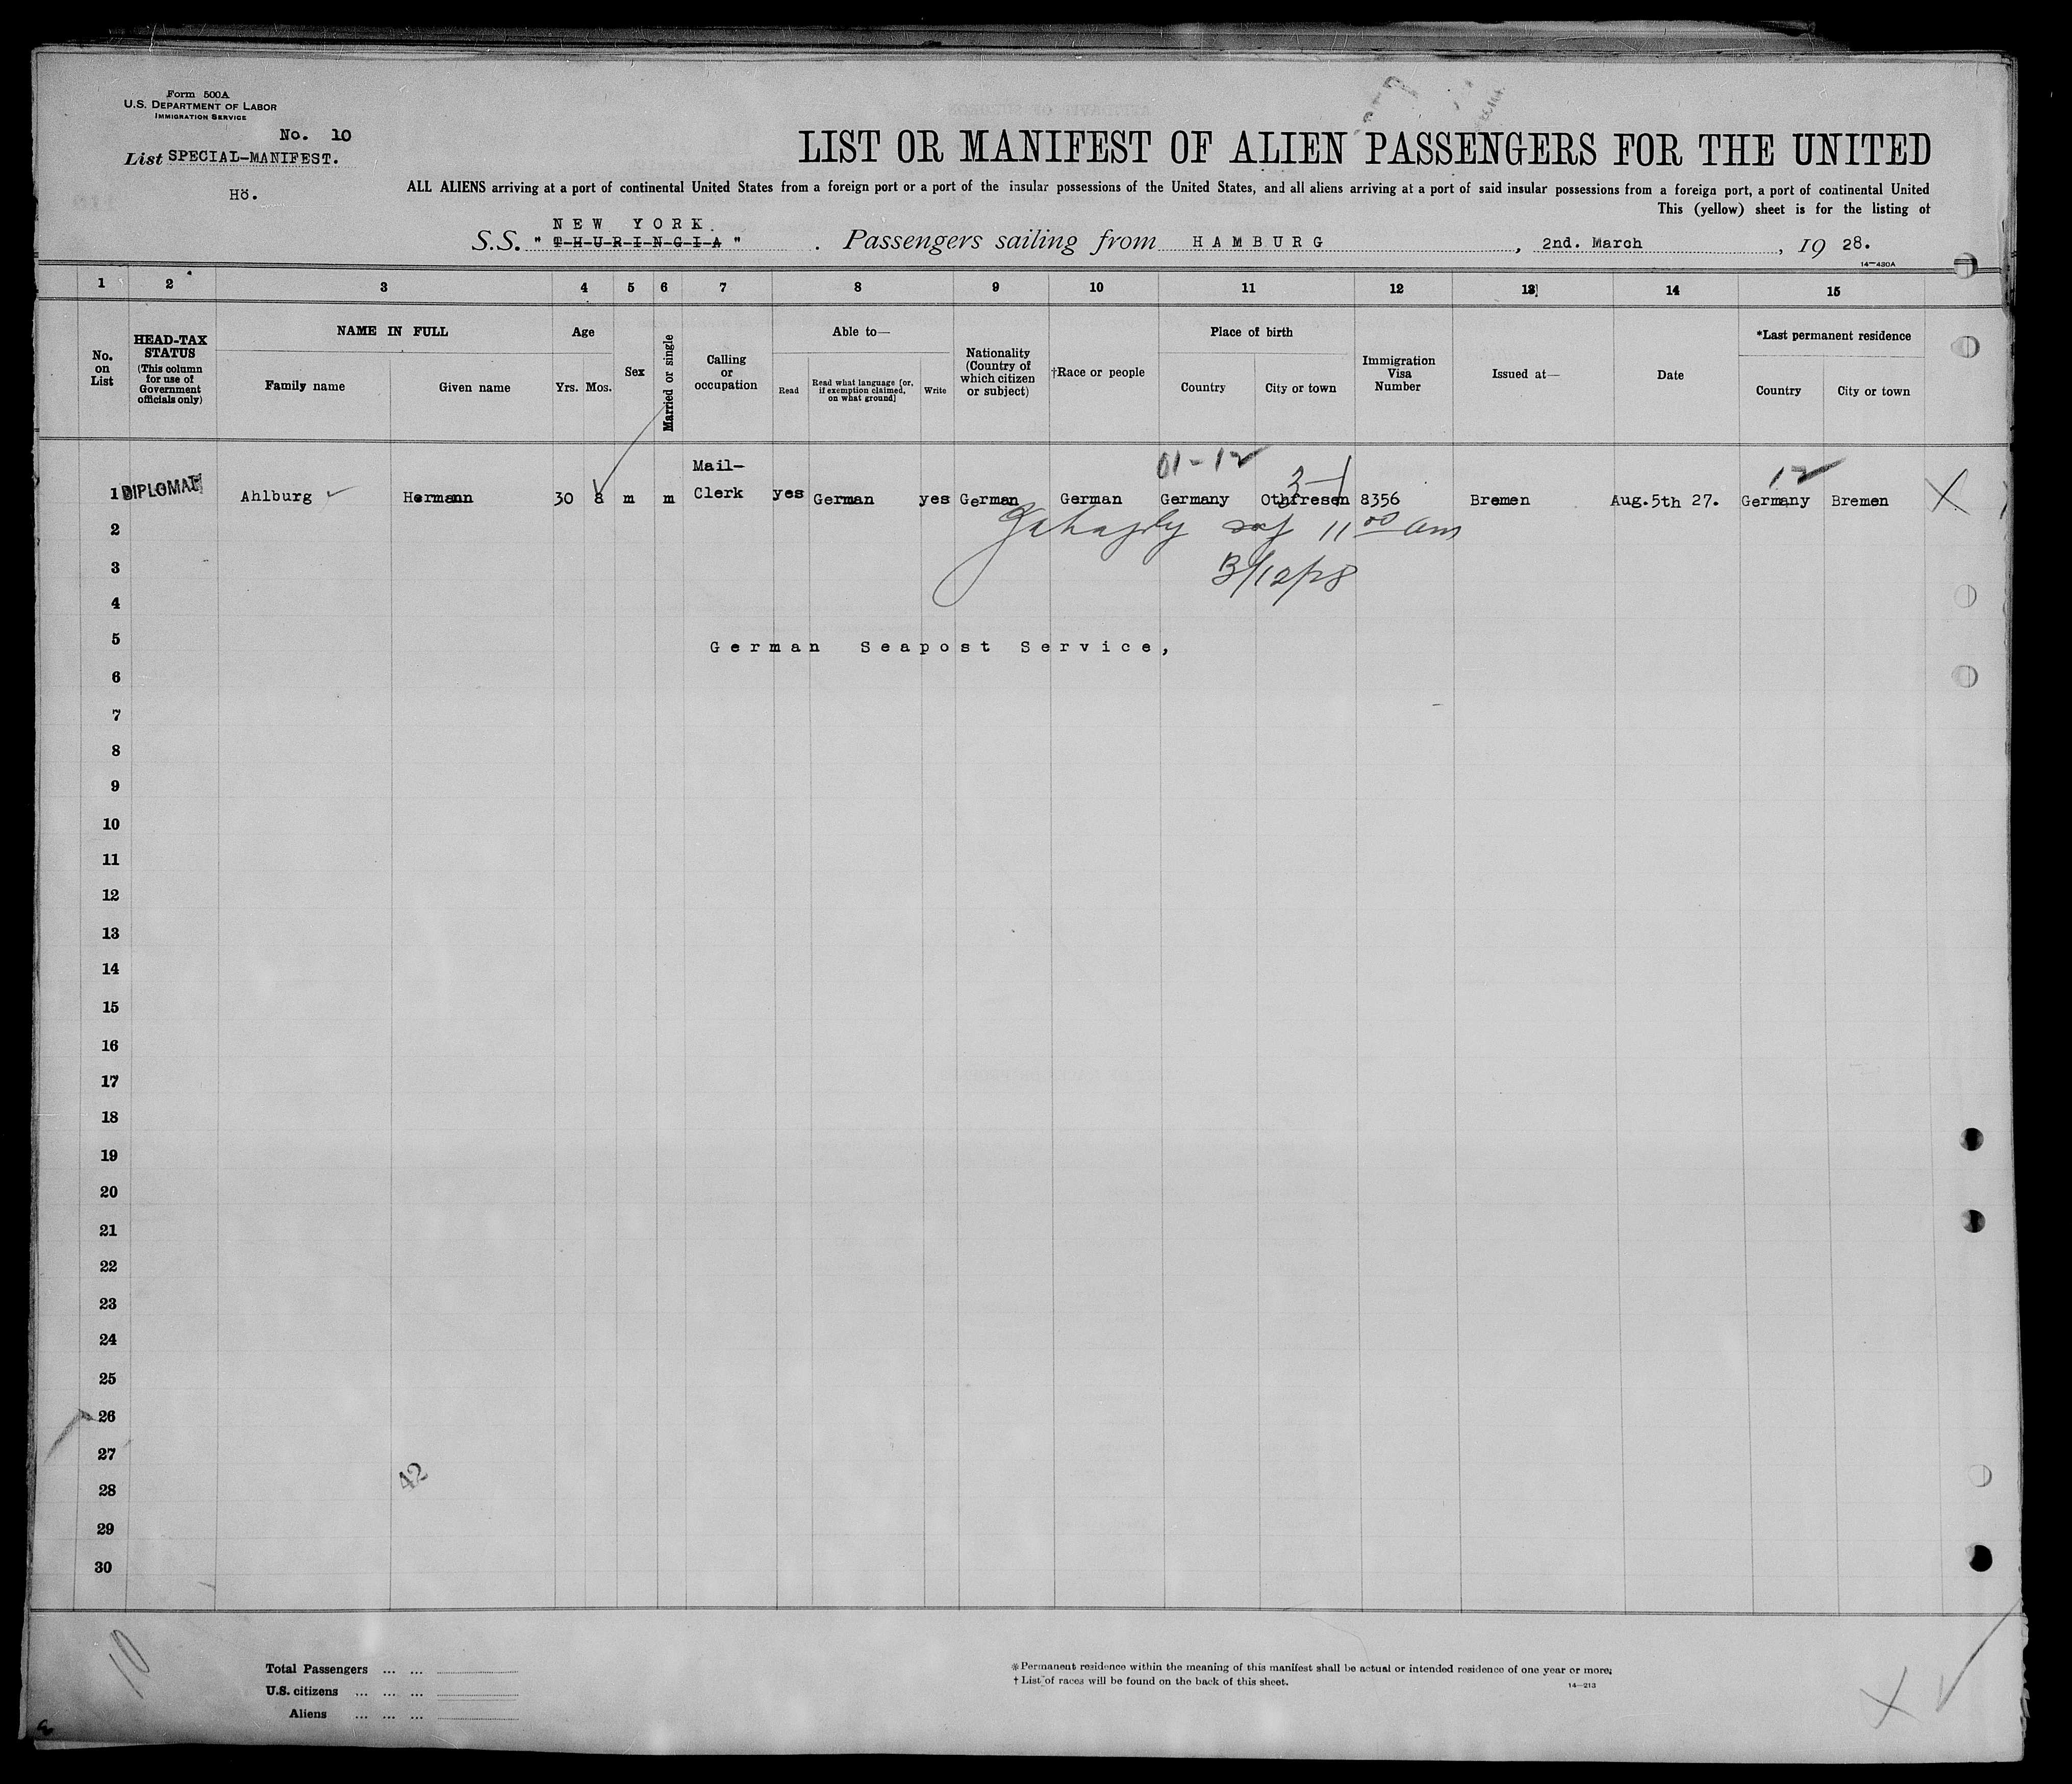 Form 500A
U.S. DEPARTMENT OF LABOR
IMMIGRATION SERVICE
No. 10
List SPECIAL-MANIFEST.
Hö.
LIST OR MANIFEST OF ALIEN PASSENGERS FOR THE UNITED
ALL ALIENS arriving at a port of continental United States from a foreign port or a port of the insular possessions of the United States, and all aliens arriving at a port of said insular possessions from a foreign port, a port of continental United
This (yellow) sheet is for the listing of
NEW YORK.
S.S. "THURINGIA". Passengers sailing from HAMBURG, 2nd. March, 1928.
14-430A
1 2 3 4 5 6 7 8 9 10 11 12 13 14 15
No. on List
HEAD-TAX STATUS (This column for use of Government officials only)
NAME IN FULL
Family name
Given name
Age
Yrs. Mos.
Sex
Married or single
Calling or occupation
Able to—
Read
Read what language [or, if exemption claimed, on what ground]
Write
Nationality (Country of which citizen or subject)
†Race or people
Place of birth
Country
City or town
Immigration Visa Number
Issued at—
Date
*Last permanent residence
Country
City or town
01-12
3-1
12
1 DIPLOMAT Ahlburg Hermann 30 8 m m Mail-Clerk yes German yes German German Germany Othfresen 8356 Bremen Aug.5th 27. Germany Bremen X
11 00 am
2
3/12/28
3
4
5
German Seapost Service,
6
7
8
9
10
11
12
13
14
15
16
17
18
19
20
21
22
23
24
25
26
27
42
28
29
30
10
Total Passengers ... ...
U.S. citizens ... ... ...
Aliens ... ... ...
*Permanent residence within the meaning of this manifest shall be actual or intended residence of one year or more.
† List of races will be found on the back of this sheet.
14-213
X